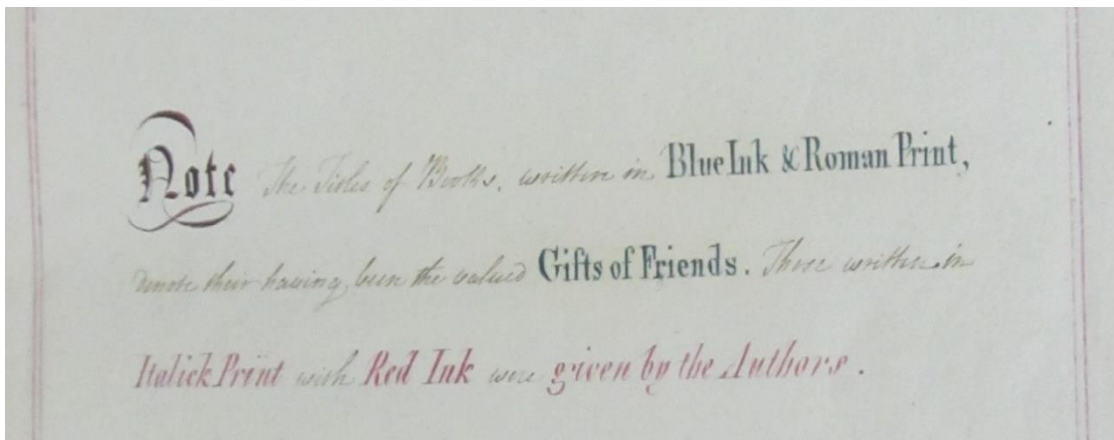 Note The Titles of Books, written in Blue Ink & Roman Print,
denote their having been the valued Gifts of Friends. Those written in
Italick Print with Red Ink were given by the Authors.